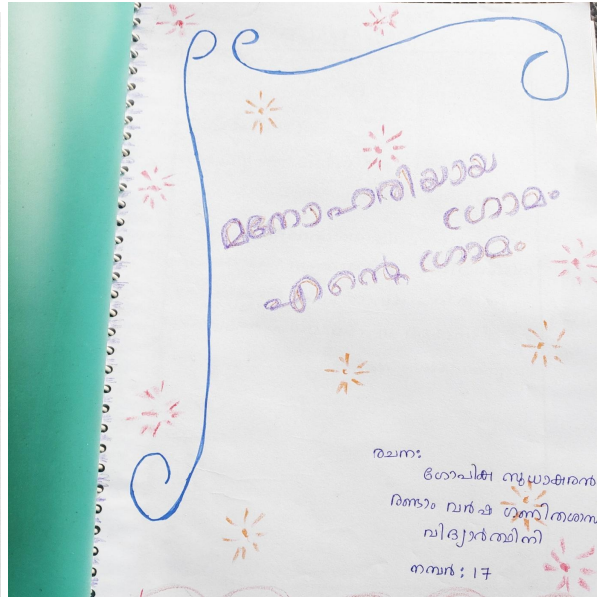 മനോഹരിയായ
ഗ്രാമം
എന്റെ ഗ്രാമം
രചന:
ഗോപിക സുധാകരൻ
രണ്ടാം വർഷ ഗണിതശാസ
വിദ്യാർത്ഥിനി
നമ്പർ: 17